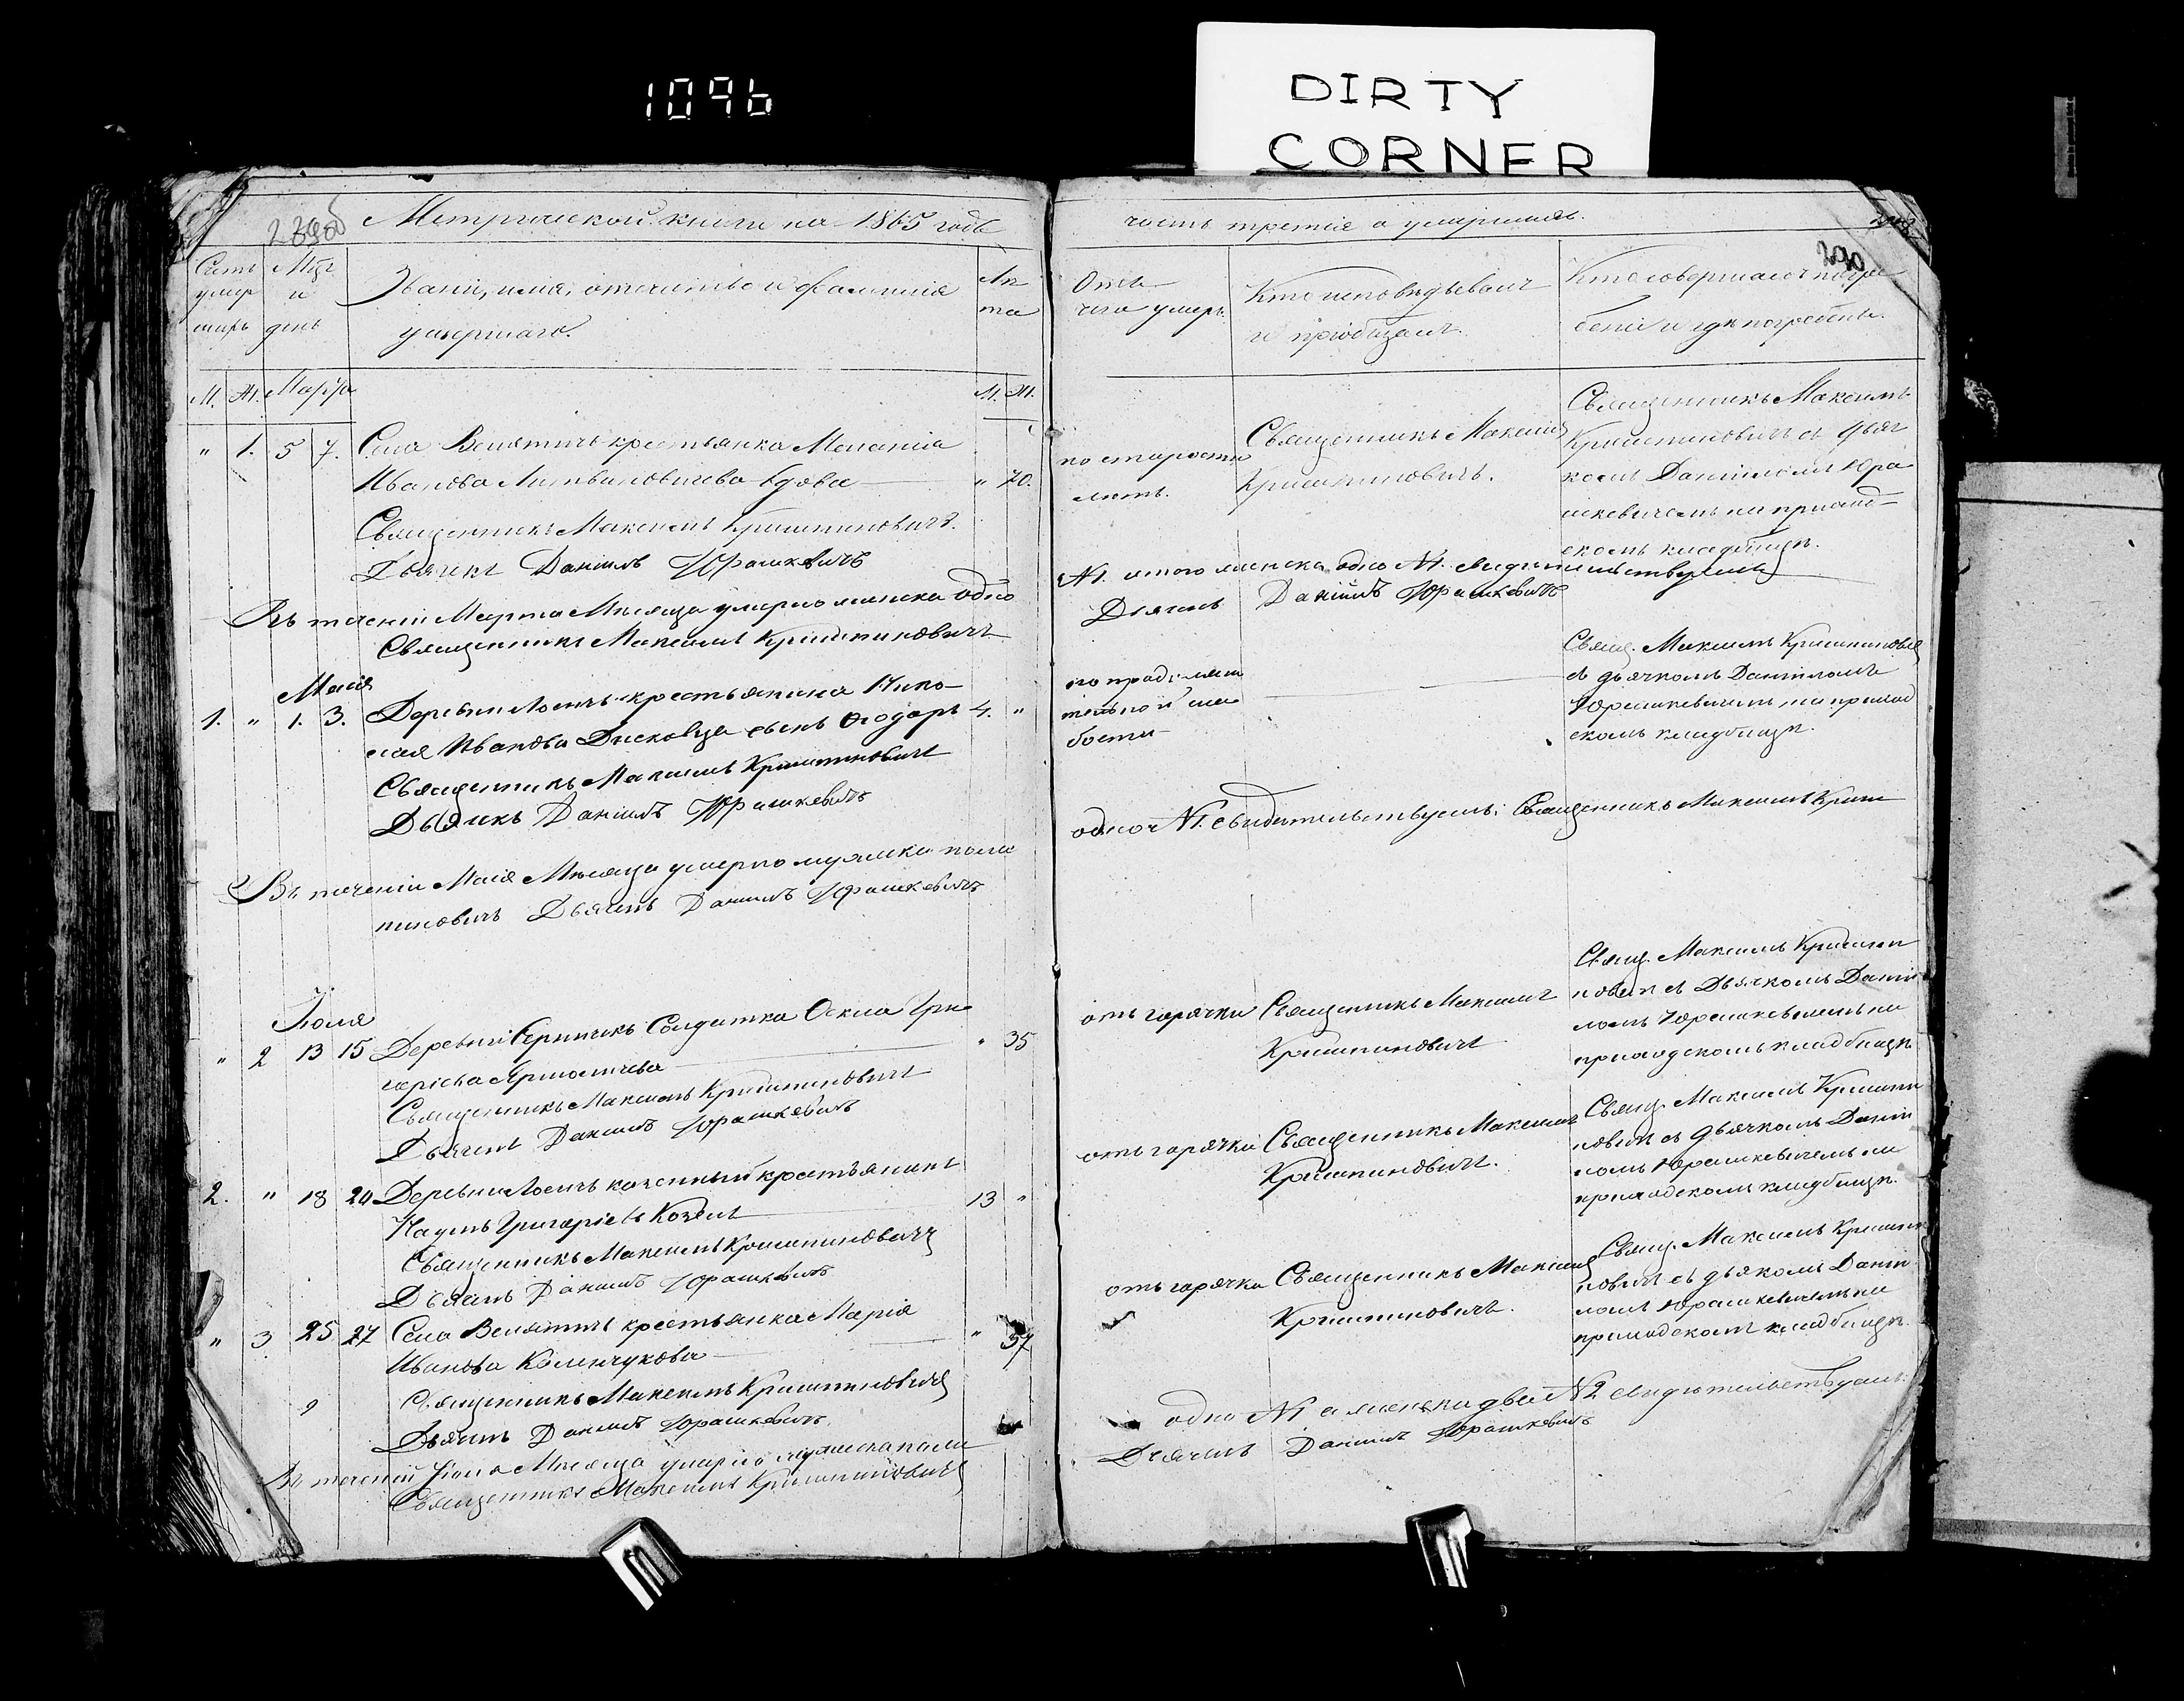 1096
DIRTY
CORNER
Метрической книги на 1865 годъ
часть третія о умершихъ.
290
Счетъ умер шихъ
Мцъ и день
Званіе, имя, отечество и фамилія
умершаго.
Лѣ та
Отъ чего умеръ.
Кто исповѣдывалъ
и пріобщалъ.
Кто совершалъ погре
беніе и гдѣ погребенъ.
М. Ж. Марта
М. Ж.
" 1. 5 7. Села Велятичъ крестьянка Меланія
Иванова Литвиновичева вдова " 70.
Священникъ Максимъ Криштиновичъ.
Дьячекъ Даніилъ Юрашкевичъ
по старости
лѣтъ.
Священникъ Максимъ
Криштиновичъ.
Священникъ Максимъ
Криштиновичъ съ дьяч
комъ Даніиломъ Юра
шкевичемъ на приход
скомъ кладбищѣ.
Въ теченіи Марта Мѣсяца умерло женска одно
Священникъ Максимъ Криштиновичъ
№1. женска одно №1. свидѣтельствуемъ
Дьячекъ Даніилъ Юрашкевичъ
Маія
1. " 1. 3. Деревни Лоситъ крестьянина Нико-
лая Иванова сынъ Ѳеодоръ 4. "
Священникъ Максимъ Криштиновичъ
Дьячекъ Даніилъ Юрашкевичъ
сла
бости
Свящ. Максимъ Криштиновичъ
съ дьячкомъ Даніиломъ
Юрашкевичемъ на приход
скомъ кладбищѣ.
Въ теченіи Маія Мѣсяца умерло мужска пола
одно №1. свидѣтельствуемъ: Священникъ Максимъ Кришти
тиновичъ Дьячекъ Даніилъ Юрашкевичъ
Іюля
" 2 13 15 Деревни Солдатка Гри
горіева " 35
Священникъ Максимъ Криштиновичъ
Дьячекъ Даніилъ Юрашкевичъ
отъ горячки
Священникъ Максимъ
Криштиновичъ
Свящ. Максимъ Кришти
новичъ съ Дьячкомъ Даніи
ломъ Юрашкевичемъ на
приходскомъ кладбищѣ
2. " 18 20 Деревни казенный крестьянинъ
Наумъ Григоріевъ Козелъ 13 "
Священникъ Максимъ Криштиновичъ
Дьячекъ Даніилъ Юрашкевичъ
отъ горячки
Священникъ Максимъ
Криштиновичъ.
Свящ. Максимъ Кришти
новичъ съ дьячкомъ Даніи
ломъ Юрашкевичемъ на
приходскомъ кладбищѣ.
" 3 25 27 Села Велятичъ крестьянка Марія
Иванова Коленчукова " 37
Священникъ Максимъ Криштиновичъ
Дьячекъ Даніилъ Юрашкевичъ
отъ горячки
Священникъ Максимъ
Криштиновичъ.
Свящ. Максимъ Кришти
новичъ съ дьякомъ Даніи
ломъ Юрашкевичемъ на
приходскомъ кладбищѣ.
Въ теченіи Іюля Мѣсяца умерло мужска пола
одно №1 а женска два №2 свидѣтельствуемъ
Священникъ Максимъ Криштиновичъ
Дьячекъ Даніилъ Юрашкевичъ